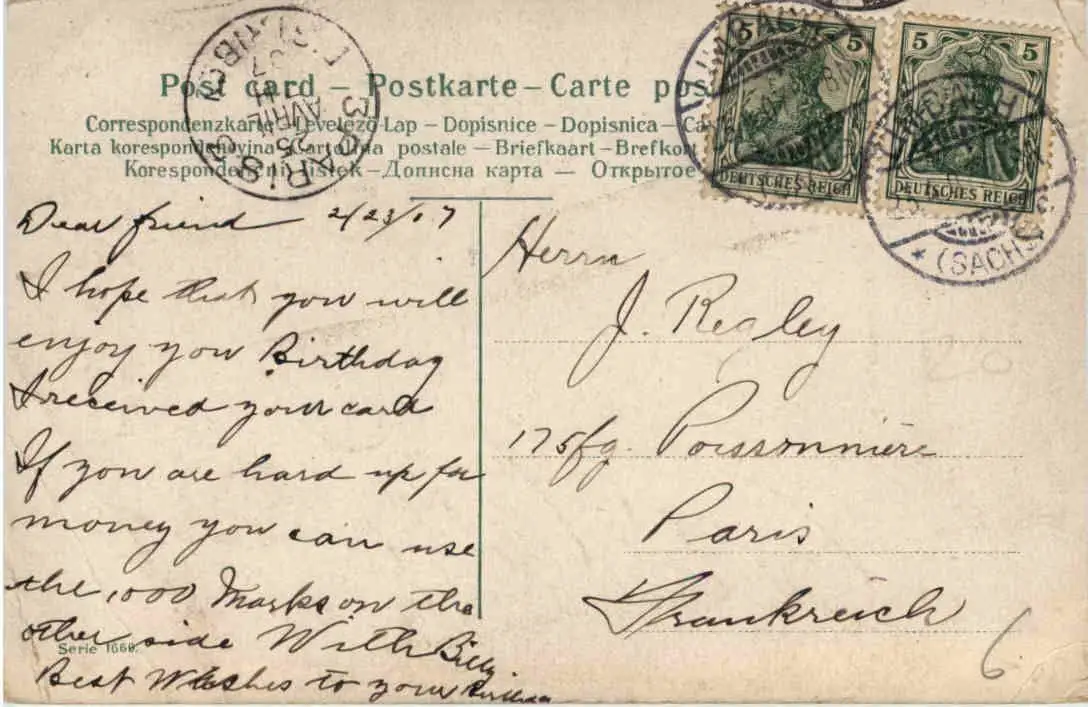 Post card – Postkarte – Carte pos
Correspondenzkarte – Levelező-Lap – Dopisnice – Dopisnica – Ca
Karta korespondencyjna – Cartolina postale – Briefkaart – Brefkort
Korespondenční lístek – Дописна карта — Открытое
PARIS
25
AVRIL
07
DISTRIBON
5 5
LIMBACH
DEUTSCHES REICH
5 5
LIMBACH
DEUTSCHES REICH
* (SACHS
Dear friend 2/23/07
I hope that you will
enjoy you Birthday
I received your card
If you are hard up for
money you can use
the ,000 Marks on the
other side With Billy
Best Wishes to your
Serie 1669.
Herrn
J. Regley
175 fg. Poissonnière
Paris
Frankreich
6